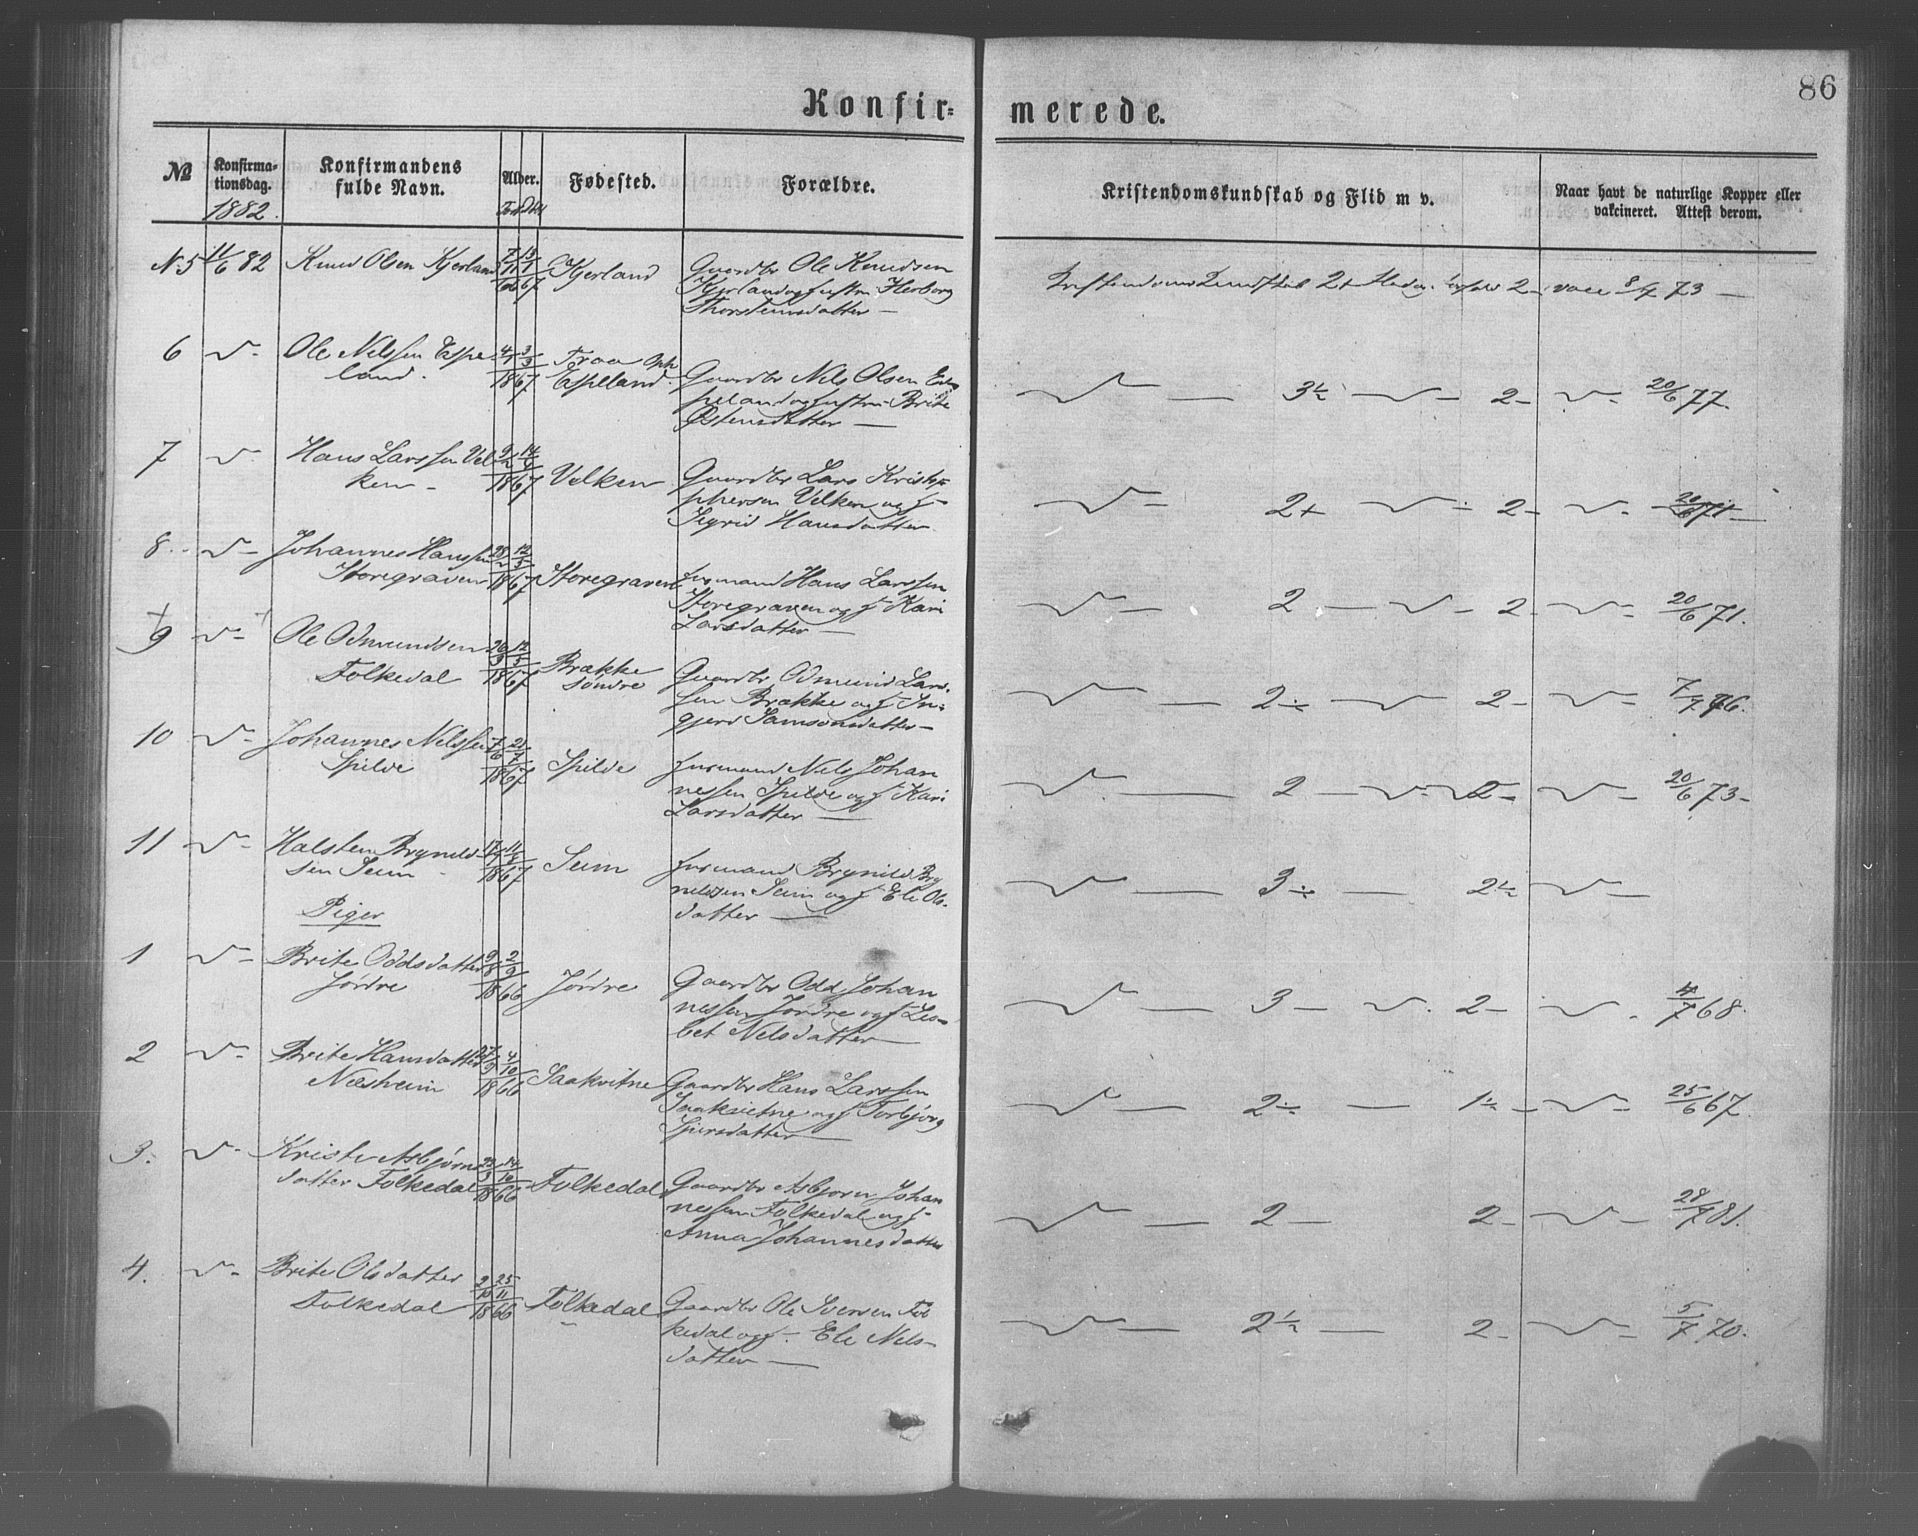 86
Konfir=
merede.
№
Konfirma-
tionsdag.
1882.
Konfirmandens
fulde Navn.
Alder.
Fødested.
Forældre.
Kristendomskundskab og Flid m v.
Naar havt de naturlige Kopper eller
vakcineret. Attest derom.
N. 5 11/6 82 Knud Olsen Kjerland 1867 Kjerland Gaardbr Ole Knudsen
Kjerland og hustru Herborg
Thorsteinsdatter —
2+ 2- vacc 8/7 73 —
6 Ole Nilssen Espe-
land. 4/1 3/3 1867 Traa
Espeland. Gaardbr Nils Olsen Es-
peland og hustru Brite
Østensdatter —
3½ — 2- 20/6 77.
7 Hans Larssen Vel-
ken - 1867 Velken Gaardbr Lars Kristof-
phersen Velken og f
Sigrid Hansdatter
2+ 2- 20/6 71 —
8 Johannes Hanssen
Storegraven 28/2 12/5 1867 Storegraven Husmand Hans Larssen
Storegraven og f Kari
Larsdatter —
2 — 2- 20/6 71.
9 Ole Odmundsen
Folkedal 26/3 12/5 1867 Brække
søndre Gaardbr Odmund Lars-
sen Brække og f In-
gjerd Samsonsdatter —
2 2- 7/7 76.
10 Johannes Nilssen
Spilde 7/6 21/7 1867 Spilde Husmand Nils Johan
nessen Spilde og f Kari
Larsdatter —
2 — 2- 20/6 73-
11 Halsten Brynild-
sen Seim 17/7 11/8 1867 Seim Husmand Brynild Bry
nildsen Seim og f Eli Ols-
datter —
3 — 2½
Piger
1 Brite Oddsdatter
Jørdre 9/8 2/9 1866 Jørdre Gaardbr Odd Johan
nessen Jørdre og f Lis-
bet Nilsdatter
3 — 2- 4/7 68.
2 Brite Hansdatter
Næsheim 4/10 1866 Saakvitne Gaardbr Hans Larssen
Saakvitne og f Torbjørg
Sjursdatter
2 — 1½ - 25/6 67
3. Kristi Asbjørns
datter Folkedal 14/10 1866 Folkedal Gaardbr Asbjørn Johan
nessen Folkedal og f
Anna Johannesdatter
2 — 2- 28/7 81.
4. Brite Olsdatter
Folkedal 2/10 25/11 1866 Folkedal Gaardbr Ole Iversen Fol
kedal og f. Eli Nils-
datter —
2½ — 2- 5/7 70.